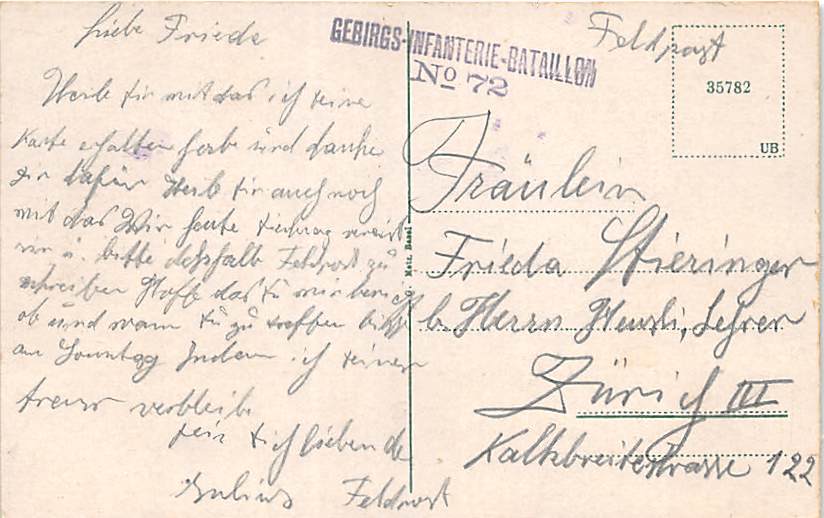 Liebe Friede
Teile dir mit das ich deine
Karte erhalten habe und danke
dir dafür Teile dir auch noch
mit das Wir heute
sind u. bitte desshalb Feldpost zu
schreiben Hoffe das du mir berichtest
ob und wann du zu treffen bist
am Sonntag Indem ich deiner
treuer verbleibe
dein dich liebende
Julius Feldpost
GEBIRGS-INFANTERIE-BATAILLON
No 72
Feldpost
35782
UB
Fräulein
Frieda Stieringer
b. Herrn Heusli, Lehrer
Zürich III
Kalkbreitestrasse 122
Basel